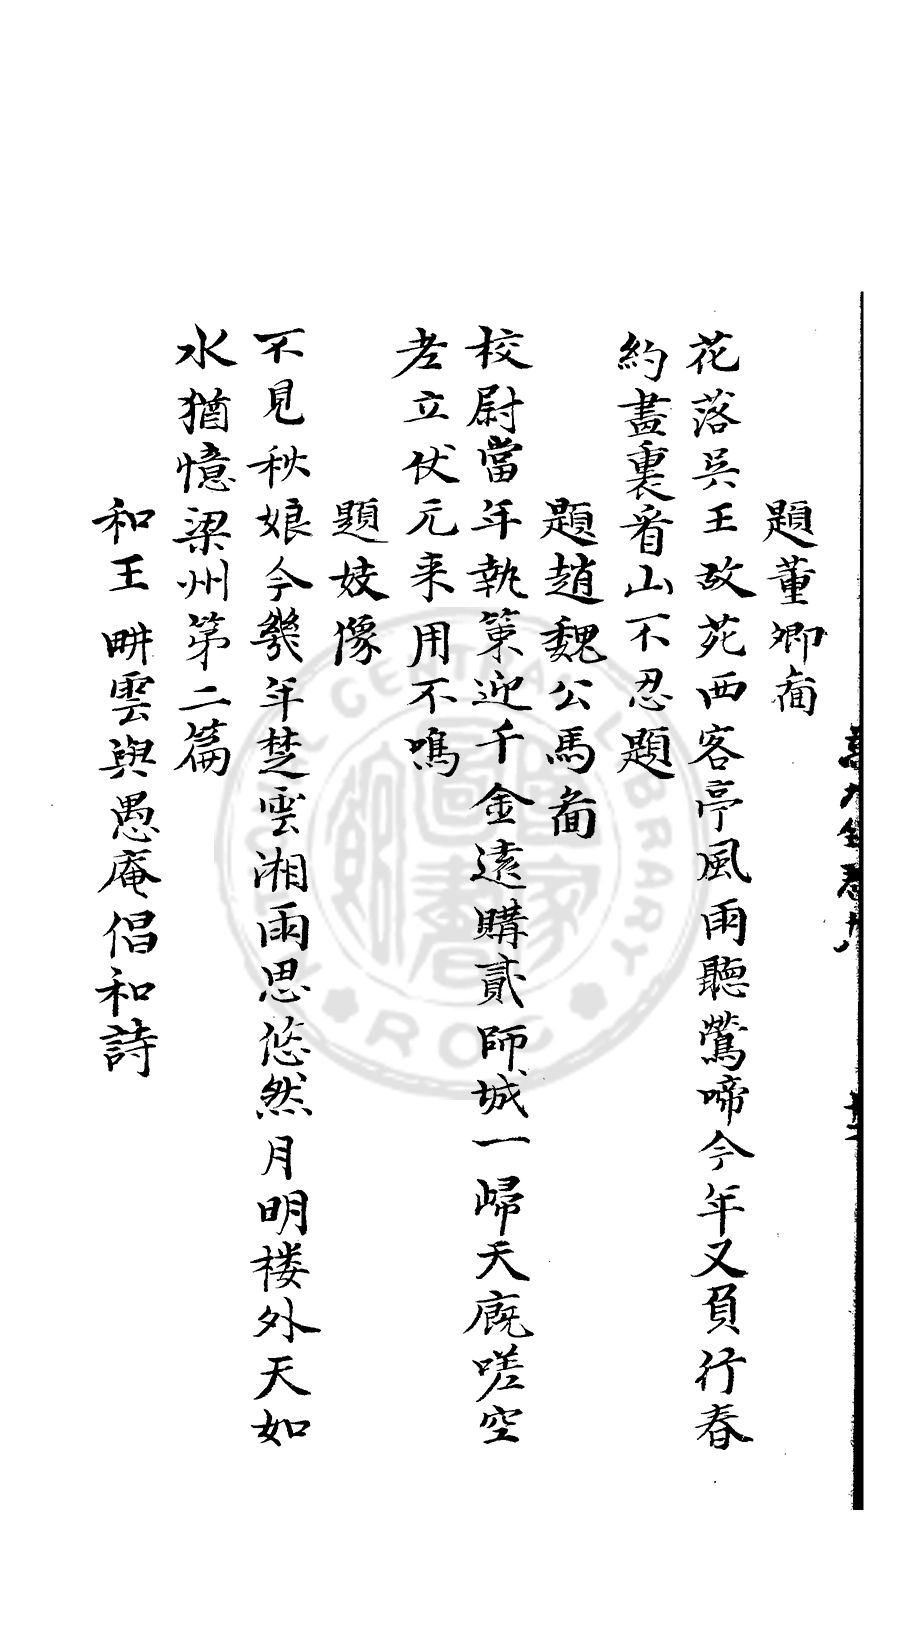 題董卿啚
花落吳王故苑西客亭風雨聽鶯啼今年又負行春
約畫裏看山不忍題
題趙魏公馬啚
校尉當年執策迎千金遠購貳師城一歸天廐嗟空
老立仗元来用不鳴
題妓像
不見秋娘今幾年楚雲湘雨思悠然月明楼外天如
水猶憶梁州第二篇
和王畊雲與愚庵倡和詩
CENTRAL LIBRARY
ROC